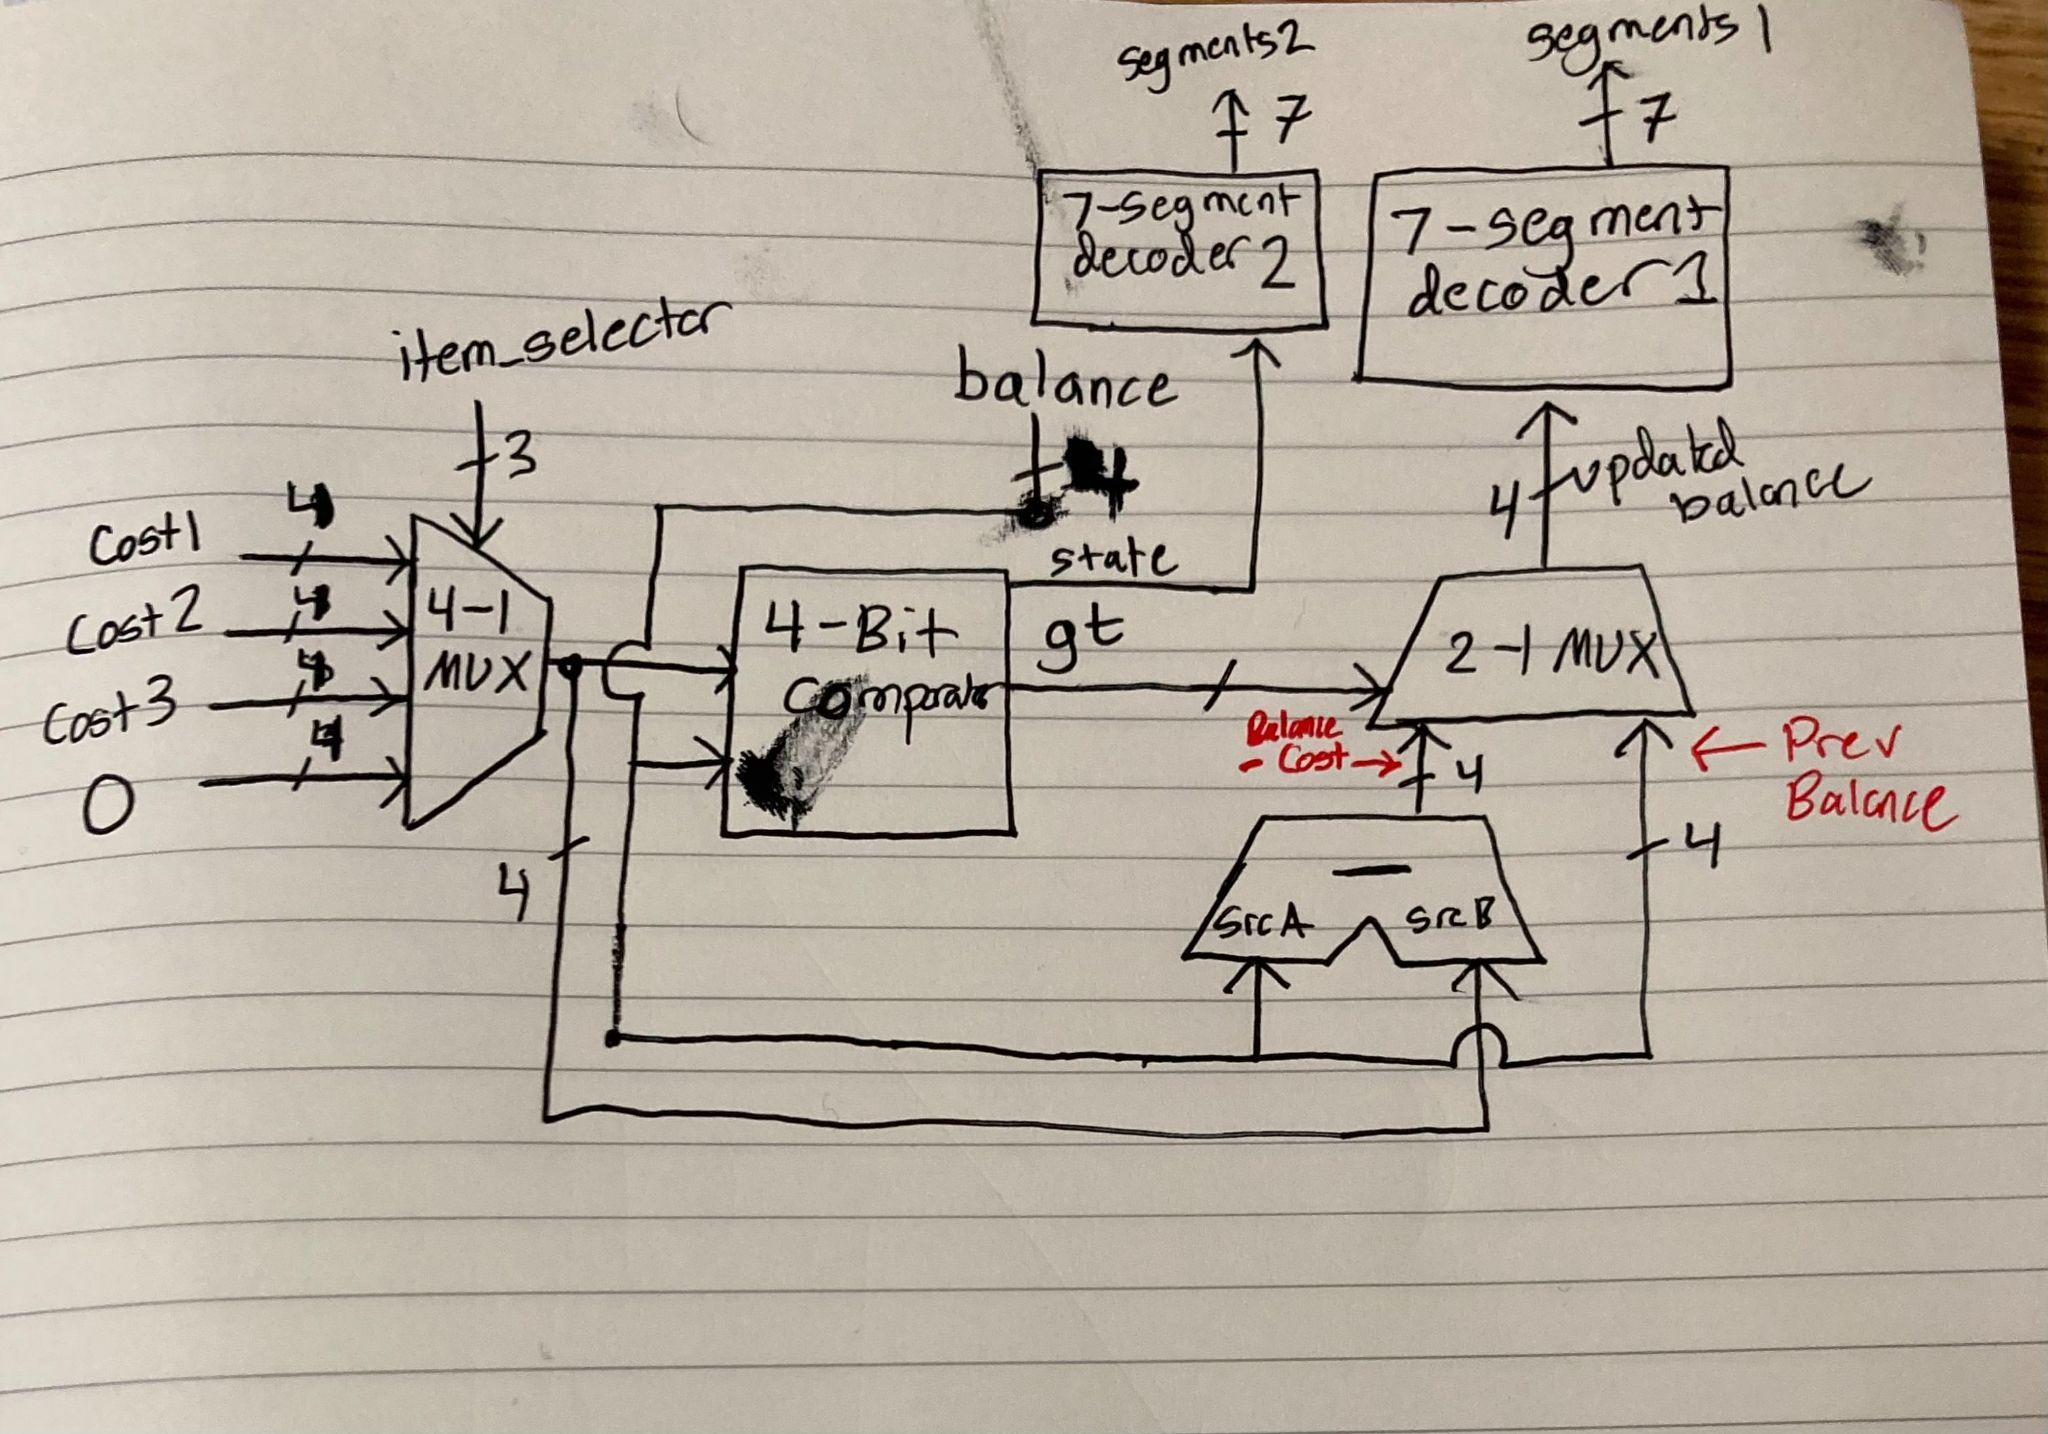 segments2
segments1
7
7
7-segment
decoder 2
7-segment
decoder 1
item_selector
balance
3
4
updated
balance
4
Cost1
4
Cost2
4
Cost3
4
0
4
4-1
MUX
state
4-Bit
Comparator
gt
2-1 MUX
Balance
- Cost
4
Prev
Balance
4
4
-
SrcA
SrcB